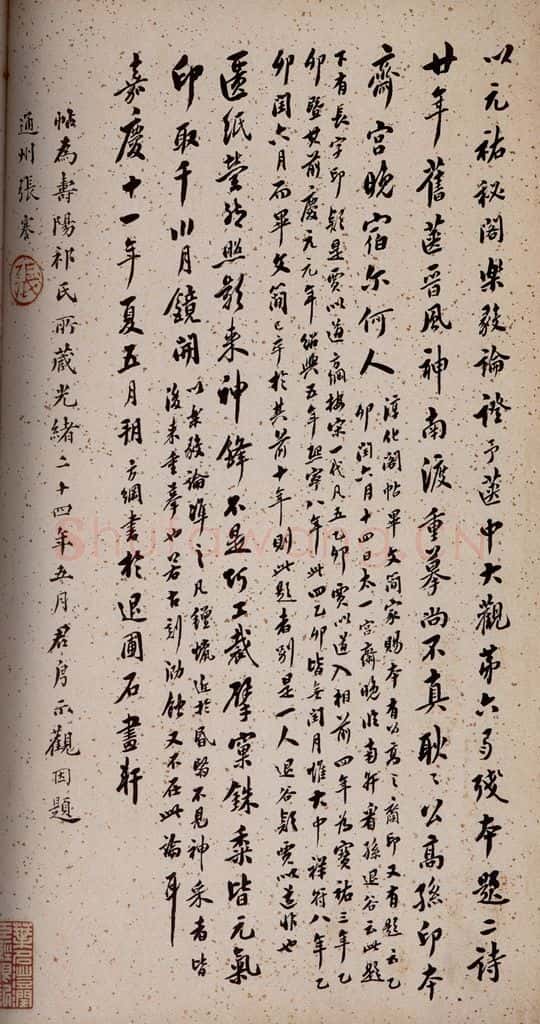 以元祐秘閣樂毅論證予藏中大觀第六多殘本題二詩
廿年舊藏晉風神南渡重摹尚不真耿々公高孫印本
齋宮晚宿尔何人
淳化閣帖畢文簡家賜本有公高之裔印又有題云乙
卯閏六月十四日太一宮齋晚臨南軒看孫退谷云此題
下有長字印疑是賈以道
宋一代凡五乙卯賈以道入相前四年為寶祐三年乙
卯暨其前慶元元年紹興五年熙寧八年此四乙卯皆無閏月惟大中祥符八年乙
卯閏六月而畢文簡已卒於其前十年則此題者別是一人退谷疑賈以道非也
匳紙瑩然照影來神鋒不是巧工裁擘窠銖黍皆元氣
印取千川月鏡開
以樂毅論準之凡鍾
近於昏
不見神采者皆
後來重摹也若古刻泐蝕又不在此論耳
嘉慶十一年夏五月朔方綱書於退圃石畫軒
帖為壽陽祁氏所藏光緒二十四年五月君月示觀因題
通州張謇
張
Shufawang.CN